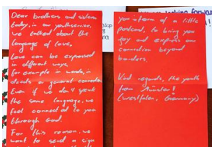 Dear brothers and sisters
today, in our youthservice,
we talked about the
language of love.
Love can be expressed
in different ways,
for example in words,
deeds or
Even if we don't speak
the same language, we
feel connected to you
through God.
For this reason we
want to send a sign
you a form of a little
podcast to bring you
joy and explain our
connection beyond
borders.
Kind regards, the youth
from
(Westfalen, Germany)